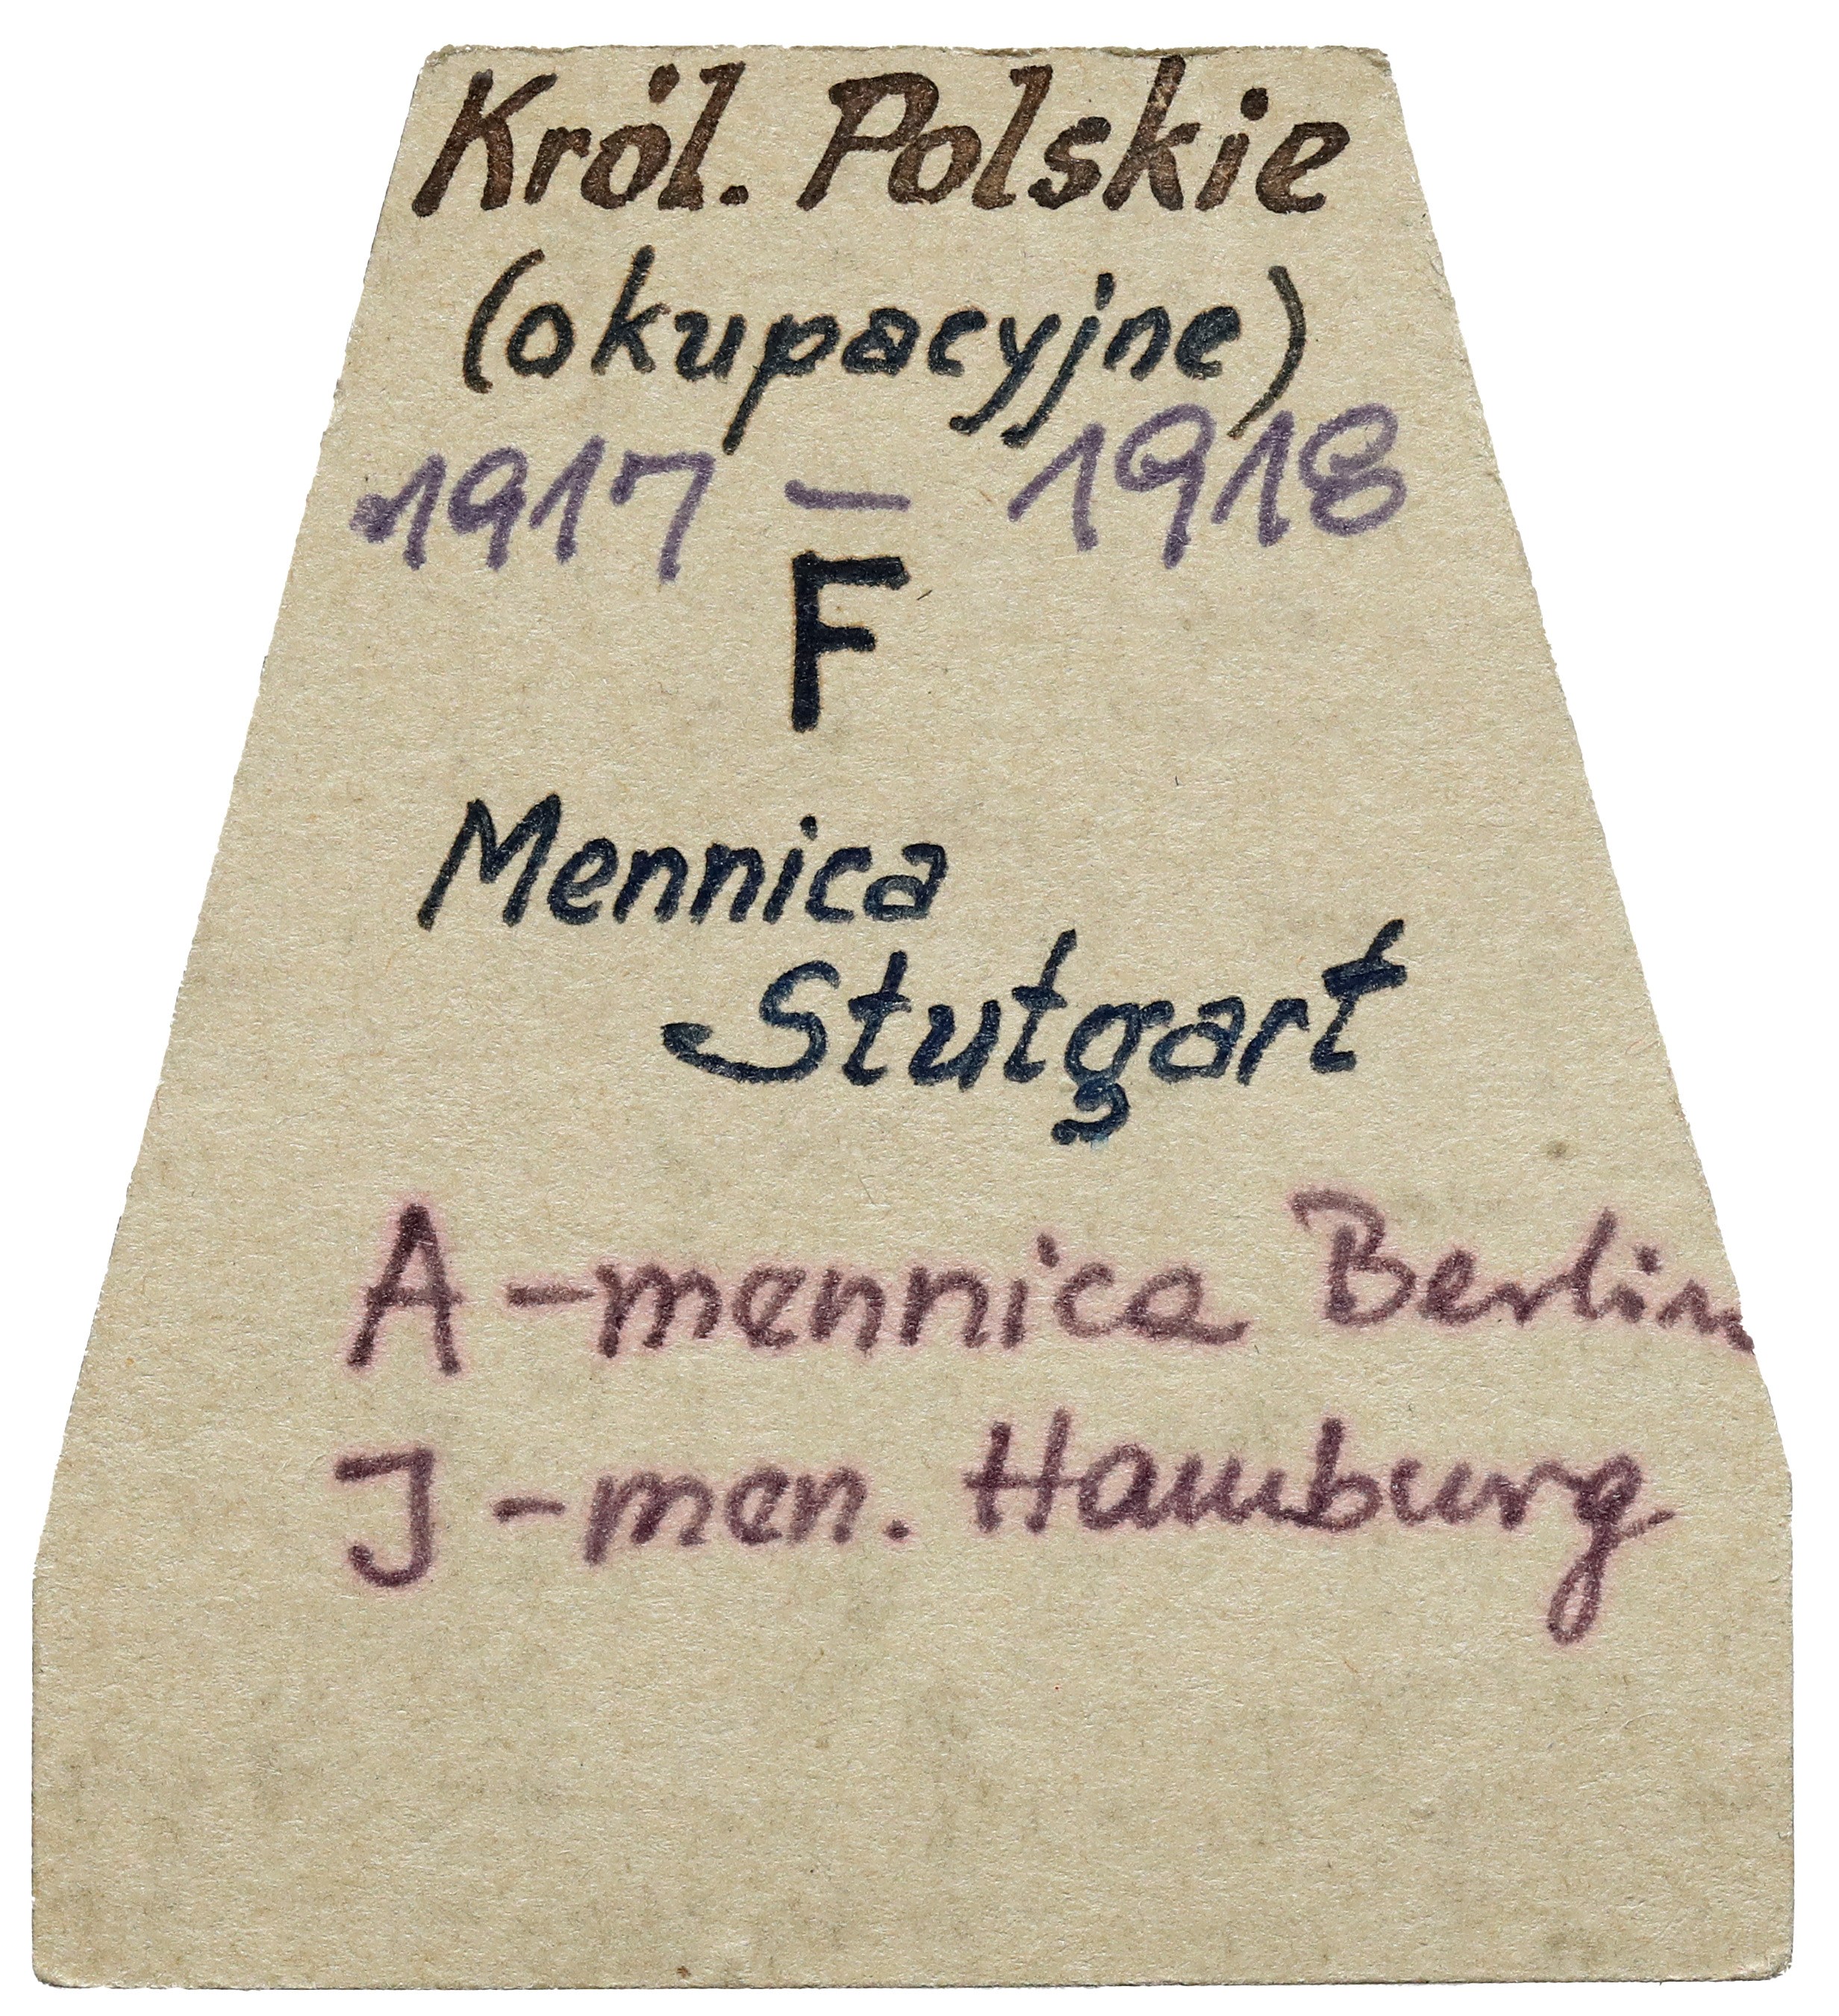 Król. Polskie
(okupacyjne)
1917 — 1918
F
Mennica
Stutgart
A – mennica Berlin
J – men. Hamburg